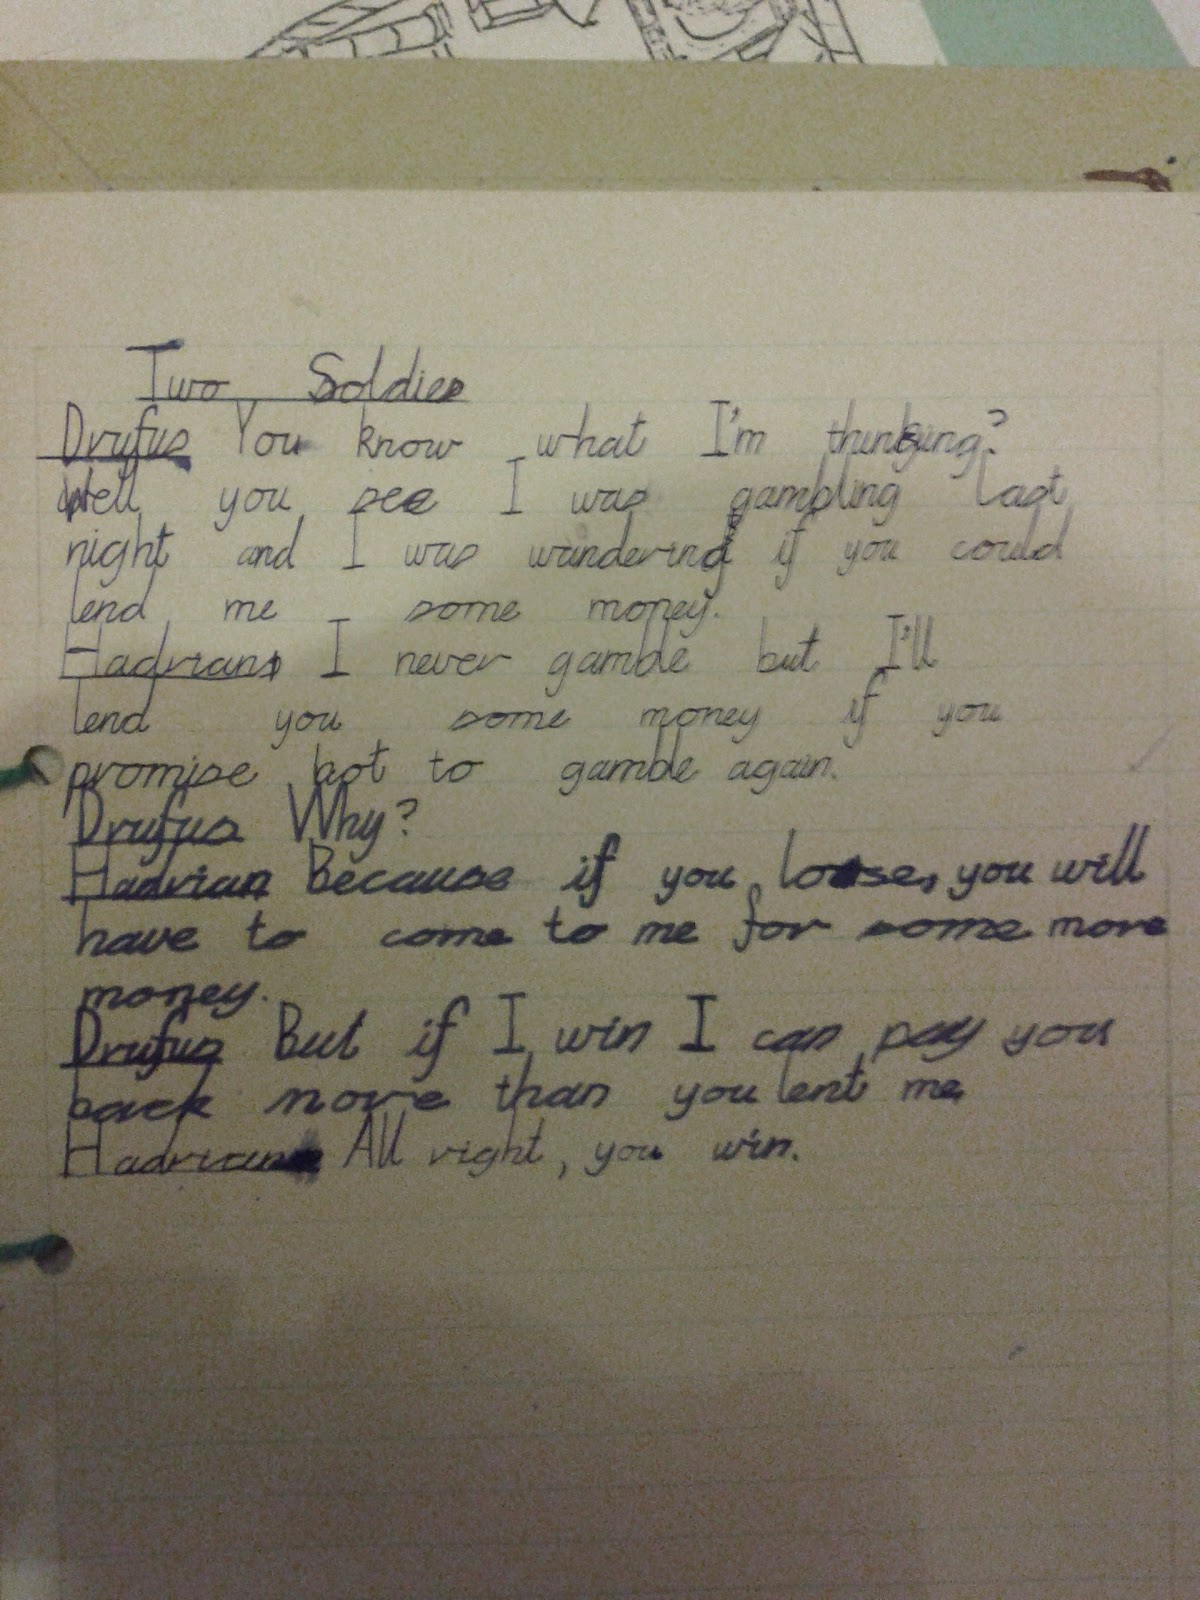 Two Soldier
Drufus You know what I'm thinking?
Well you see I was gambling last
night and I was wundering if you could
lend me some money.
Hadrian I never gamble but I'll
lend you some money if you
promise not to gamble again.
Drufus Why?
Hadrian Because if you loose, you will
have to come to me for some more
money.
Drufus But if I win I can pay you
back more than you lent me
Hadrian All right, you win.